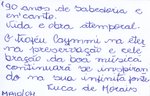 90 anos de sabedoria e
encanto.
Vida e obra atemporal.
O Troféu Caymmi na eter
na preservação e cele
bração da boa música
continuará se inspiran
do na sua infinita fonte
Tuca de Moraes
MAIO/04